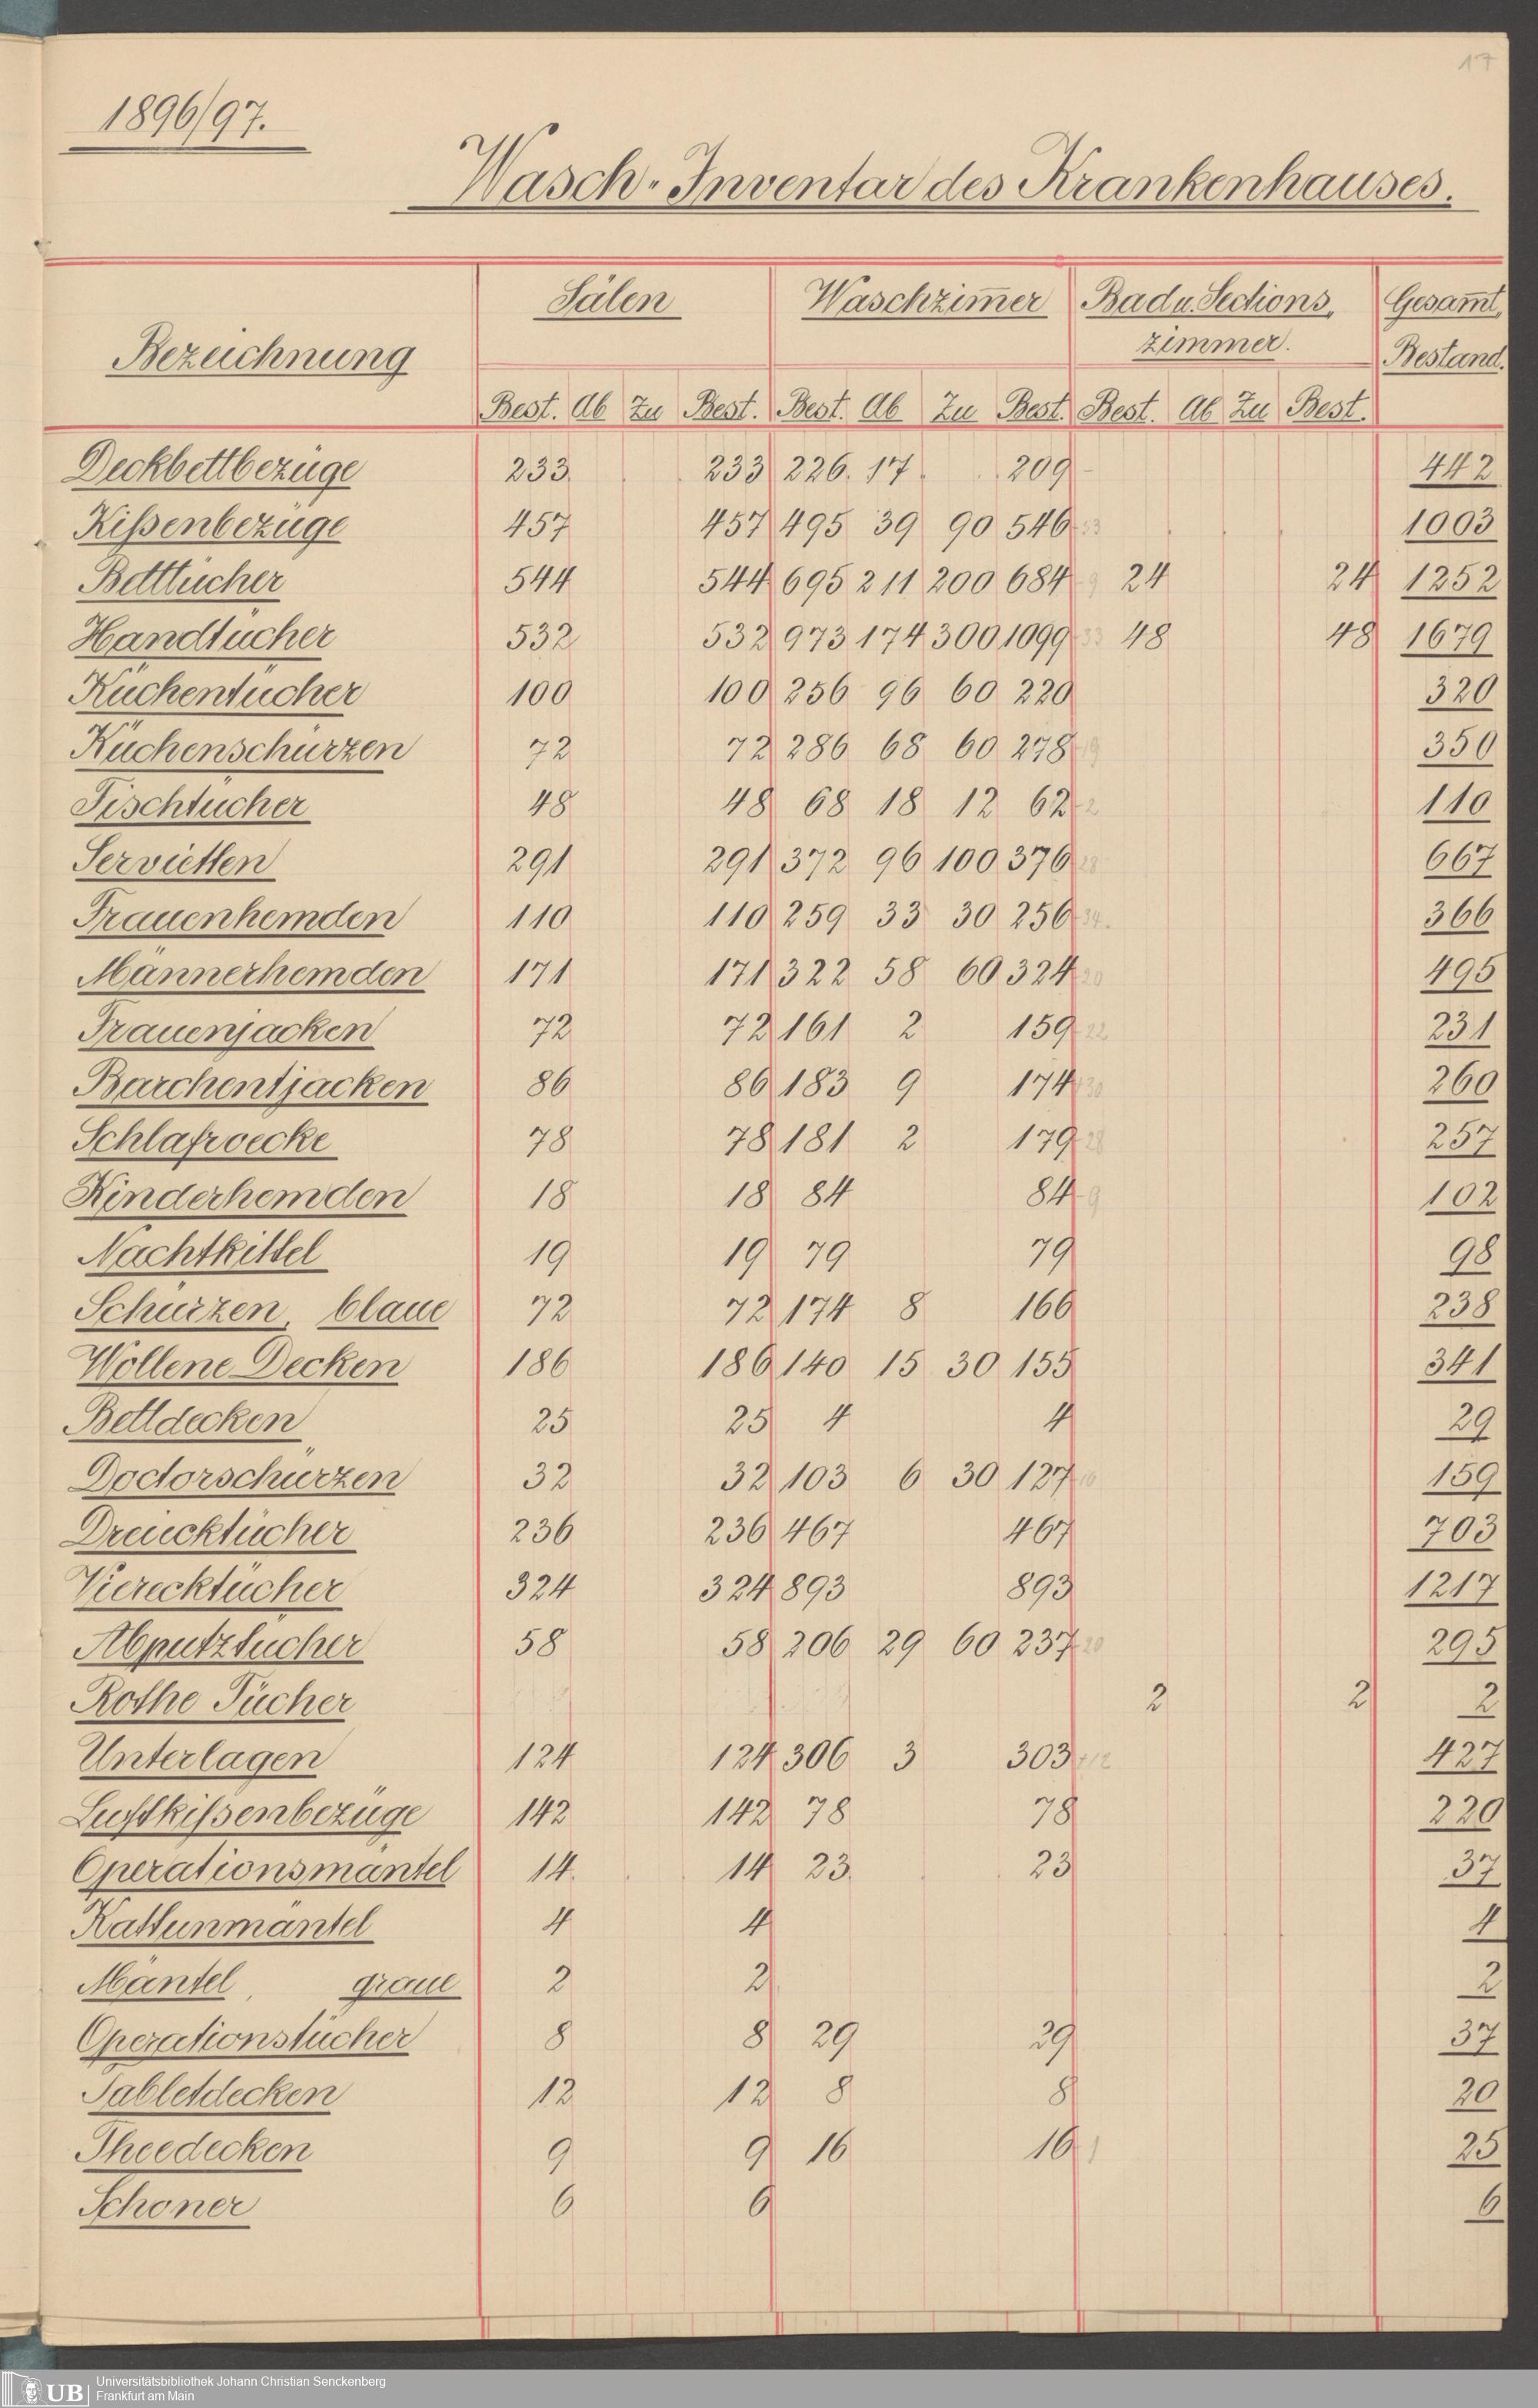 17
1896/97.
Wasch-Inventar des Krankenhauses.
Bezeichnung Sälen Waschzim̅er Bad u. Sections, Gesam̅t,
zimmer. Bestand.
Best. Ab Zu Best. Best. Ab Zu Best. Best. Ab Zu Best.
Deckbettbezüge 233 233 226 17 209 442
Kißenbezüge 457 457 495 39 90 546 1003
Betttücher 544 544 695 211 200 684 24 24 1252
Handtücher 532 532 973 174 300 1099 48 48 1679
Küchentücher 100 100 256 96 60 220 320
Küchenschürzen 72 72 286 68 60 278 350
Tischtücher 48 48 68 18 12 62 110
Servietten 291 291 372 96 100 376 667
Frauenhemden 110 110 259 33 30 256 366
Männerhemden 171 171 322 58 60 324 495
Frauenjacken 72 72 161 2 159 231
Barchentjacken 86 86 183 9 174 260
Schlafroecke 78 78 181 2 179 257
Kinderhemden 18 18 84 84 102
Nachtkittel 19 19 79 79 98
Schürzen, blaue 72 72 174 8 166 238
Wollene Decken 186 186 140 15 30 155 341
Bettdecken 25 25 4 4 29
Doctorschürzen 32 32 103 6 30 127 159
Dreiecktücher 236 236 467 467 703
Vierecktücher 324 324 893 893 1217
Abputztücher 58 58 206 29 60 237 295
Rothe Tücher 2 2 2
Unterlagen 124 124 306 3 303 427
Luftkißenbezüge 142 142 78 78 220
Operationsmäntel 14 14 23 23 37
Kattunmäntel 4 4 4
Mäntel, graue 2 2 2
Operationstücher 8 8 29 29 37
Tabletdecken 12 12 8 8 20
Theedecken 9 9 16 16 25
Schoner 6 6 6
UB
Universitätsbibliothek Johann Christian Senckenberg
Frankfurt am Main